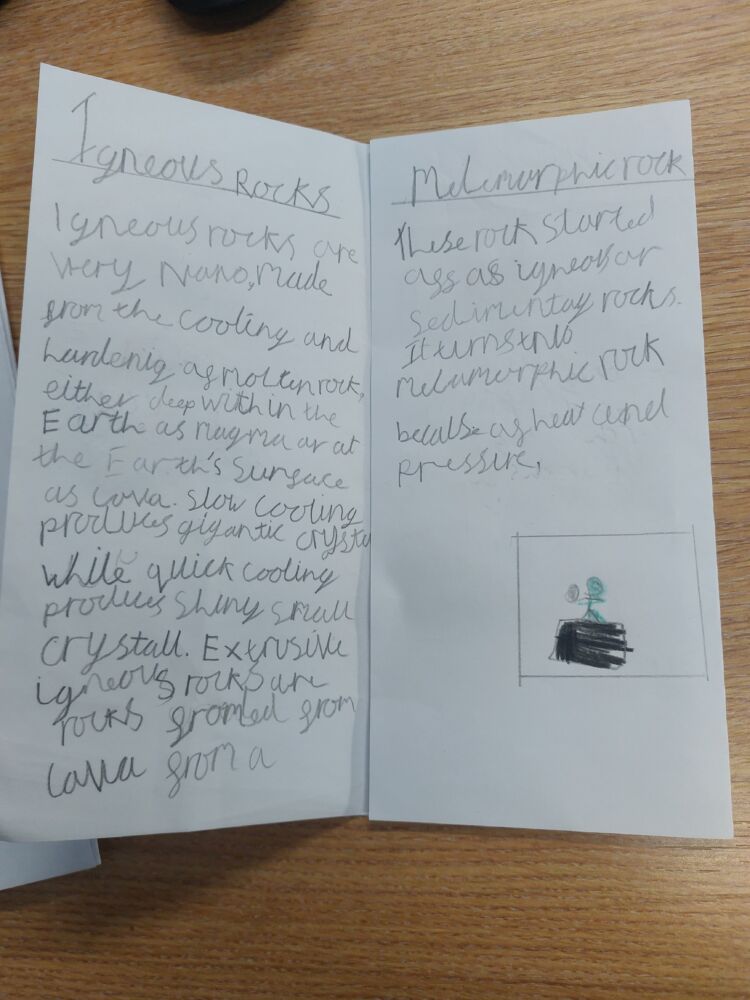 Igneous Rocks
Igneous rocks are
very Nano, Made
from the cooling and
hardenig of molten rock,
either deep within the
Earth as magma or at
the Earth's Surface
as lava. Slow cooling
produces gigantic crysta
while quick cooling
produces shiny small
crystall. Extrusive
igneous rocks are
rocks fromed from
lava from a
Metamorphic rock
these rock started
as igneous or
Sedimentay rocks.
It turns into
metamorphic rock
of heat and
pressure,